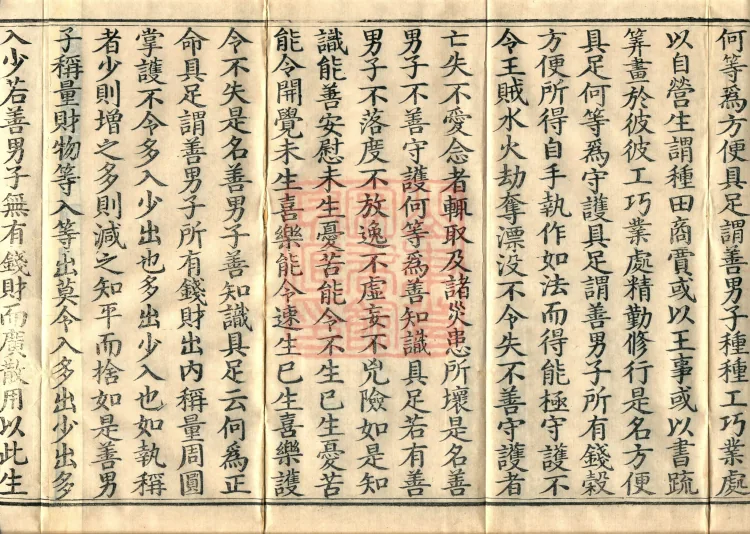 何等爲方便具足謂善男子種種工巧業處
以自營生謂種田商賈或以王事或以書䟽
筭畫於彼彼工巧業處精勤修行是名方便
具足何等爲守護具足謂善男子所有錢榖
方便所得自手執作如法而得能極守護不
令王賊水火劫奪漂没不令失不善守護者
亡失不愛念者輙取及諸災患所壞是名善
男子不善守護何等爲善知識具足若有善
男子不落度不放逸不虛妄不兇險如是知
識能善安慰未生憂苦能令不生已生憂苦
能令開覺未生喜樂能令速生已生喜樂護
令不失是名善男子善知識具足云何爲正
命具足謂善男子所有錢財出内稱量周圓
掌護不令多入少出也多出少入也如執稱
者少則增之多則減之知平而捨如是善男
子稱量財物等入等出莫令入多出少出多
入少若善男子無有錢財而廣散用以此生